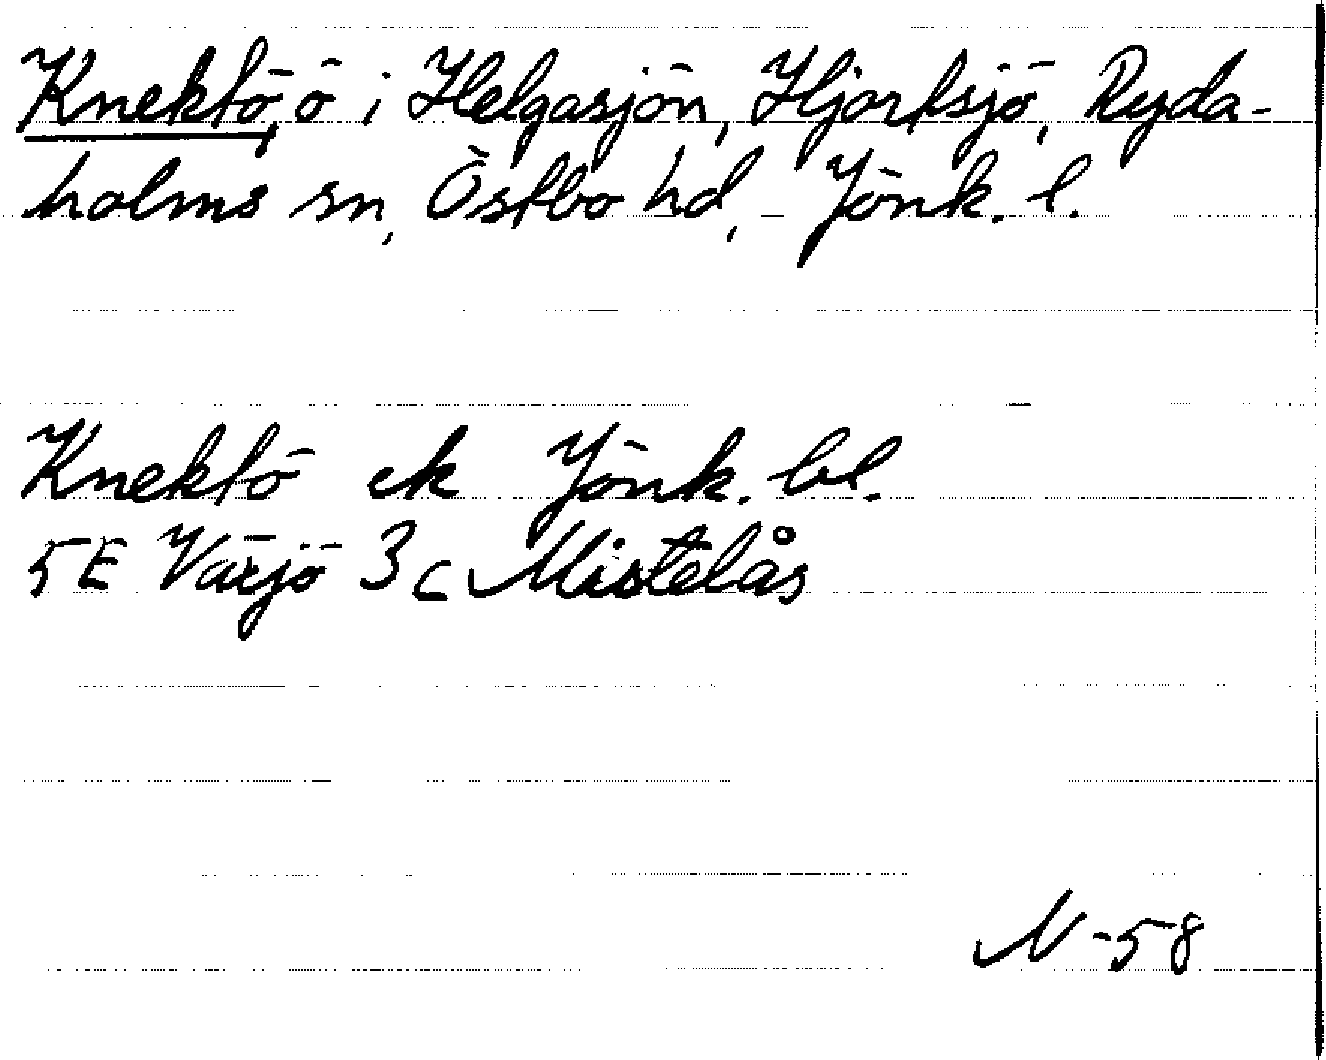 Knektö, ö i Helgasjön, Hjortsjö, Ryda-
holms sn, Östbo hd, Jönk. l.
Knektö ek Jönk. bl.
5E Växjö 3c Mistelås
N -58